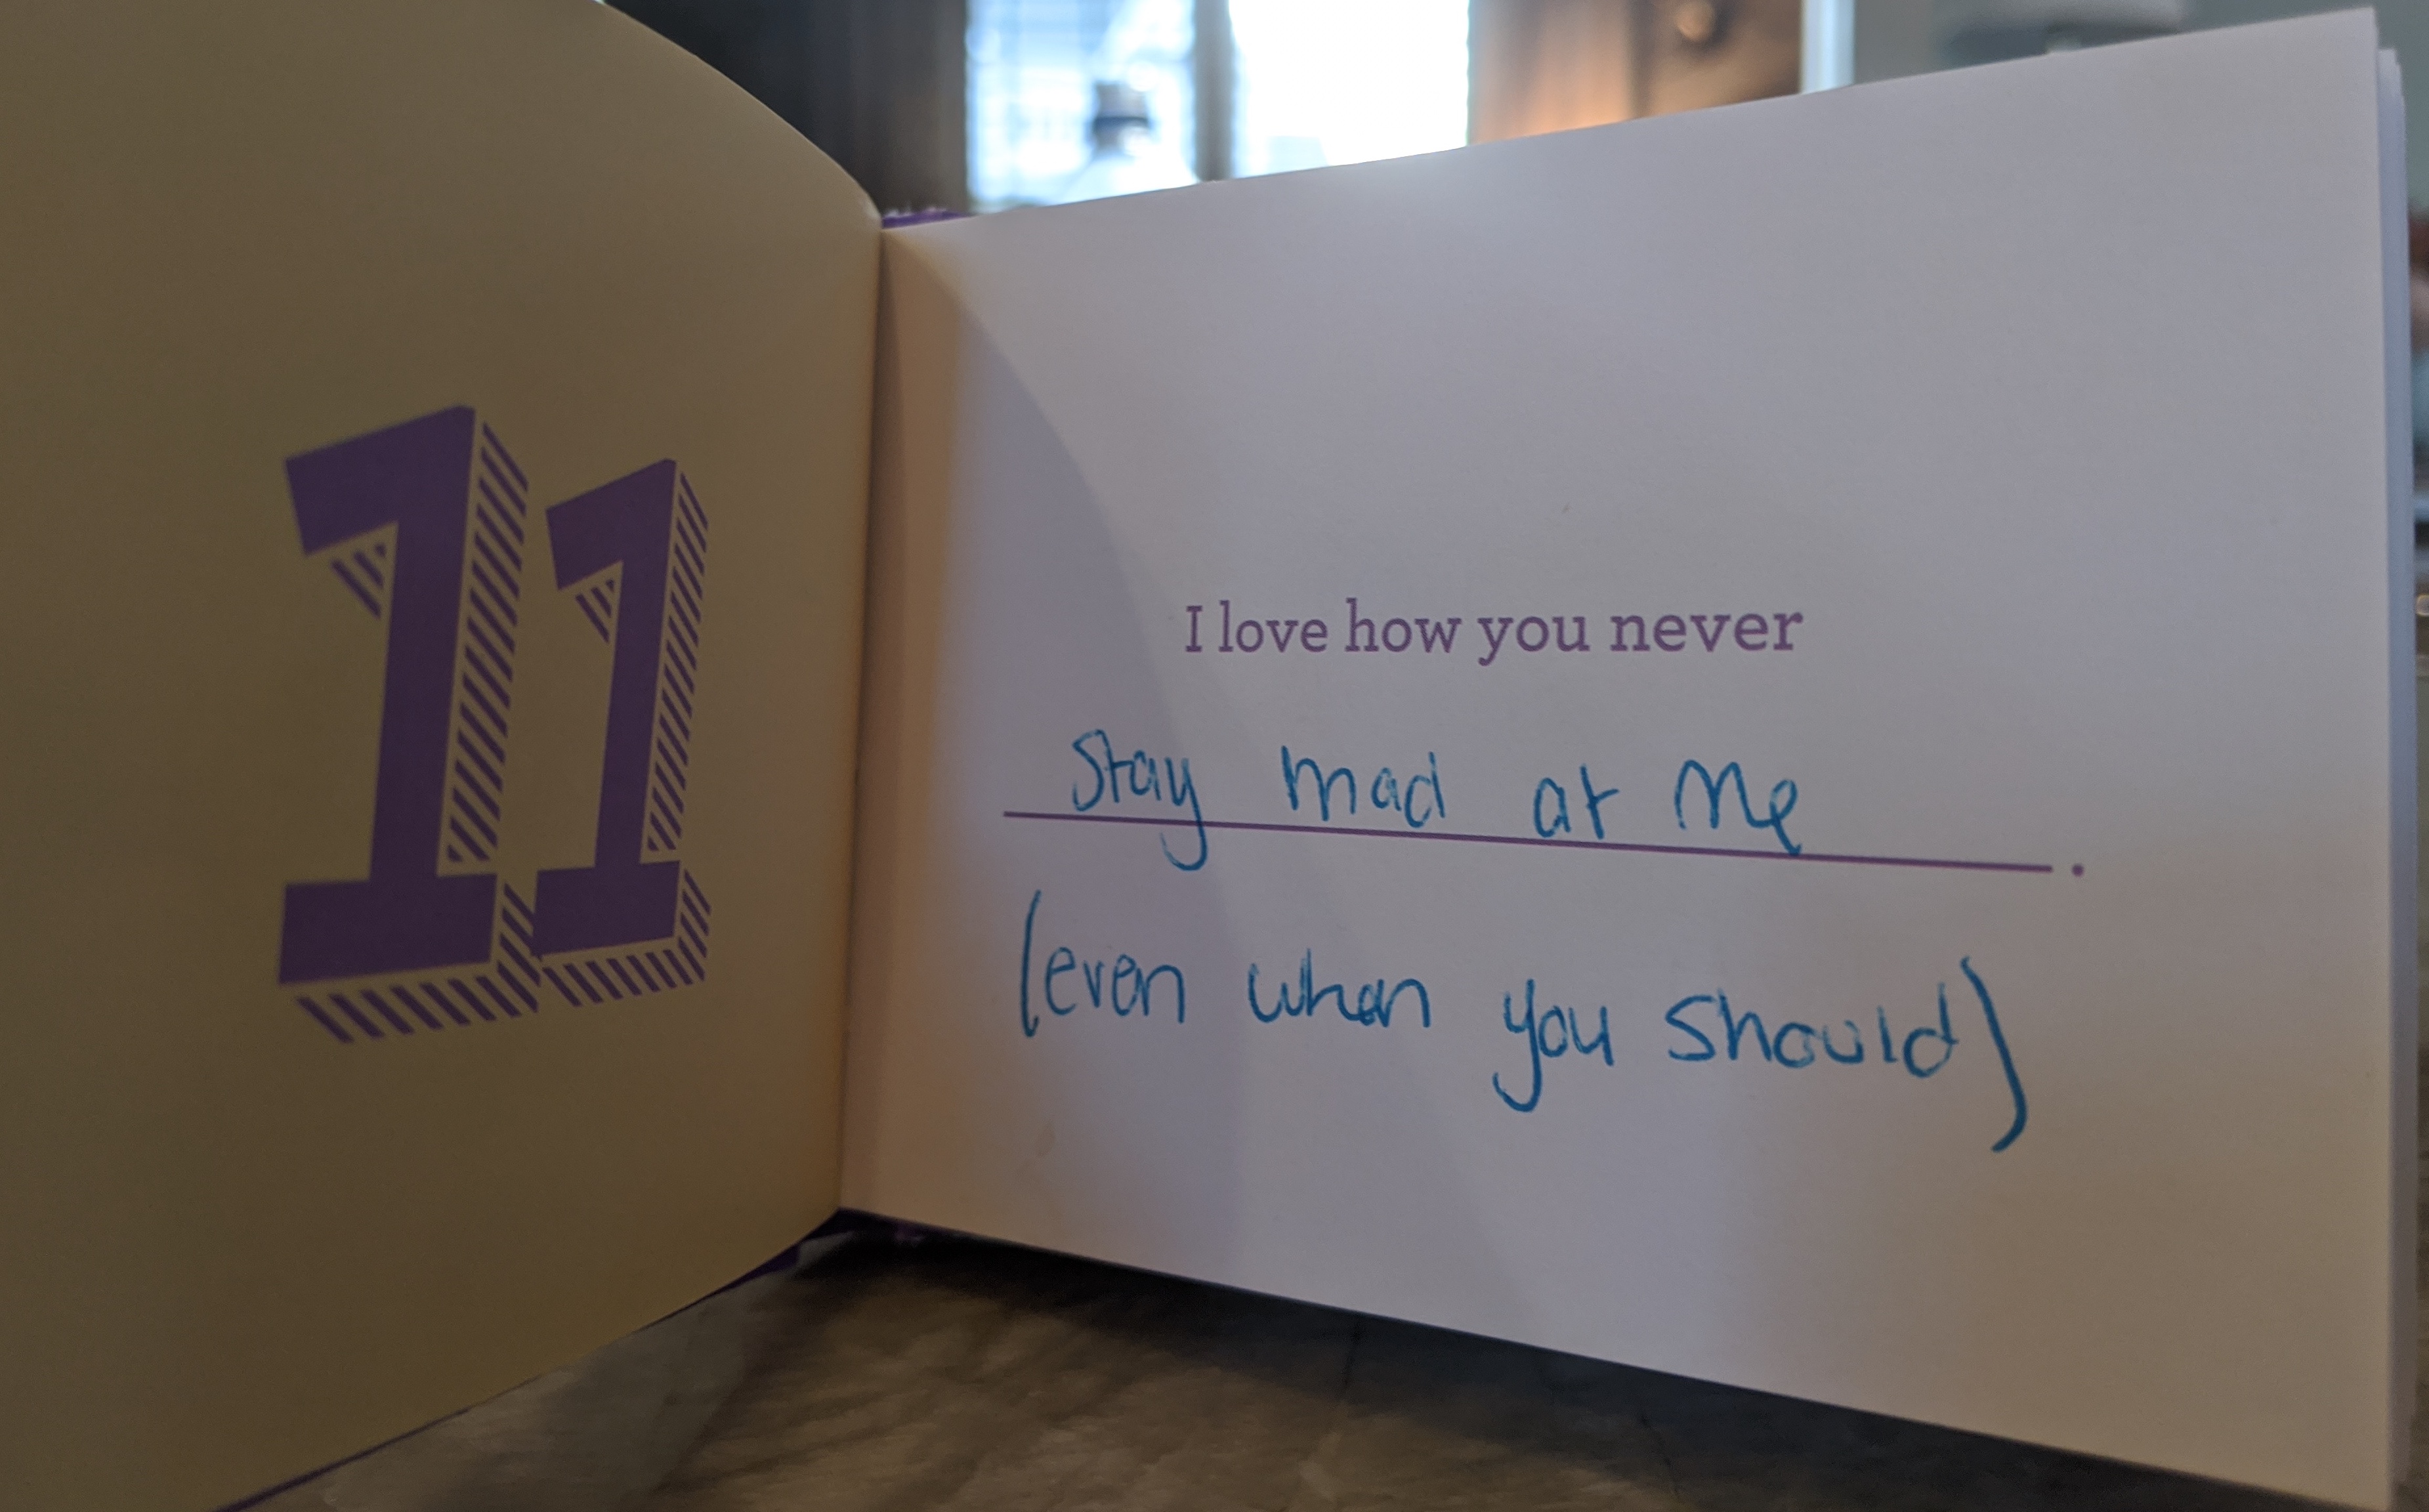 11
I love how you never
Stay mad at me
.
(even when you should)